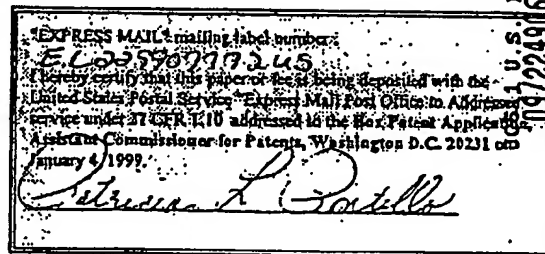 "EXPRESS MAIL" mailing label number:
I hereby certify that this paper or fee is being deposited with the
United States Postal Service "Express Mail Post Office to Addressee"
service under 37 CFR 1.10 addressed to the Box Patent Application
Assistant Commissioner for Patents, Washington D.C. 20231 on
January 4, 1999.
Patricia L Portello